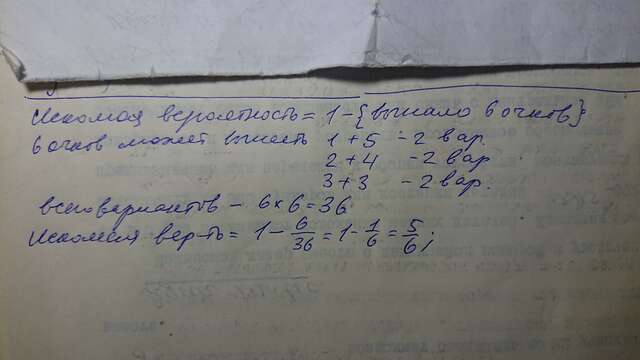 Искомая вероятность = 1 - {выпало 6 очков}=
6 очков может выпасть 1 + 5 - 2 вар.
2 + 4 - 2 вар
3 + 3 - 2 вар.
всего вариантов - 6 × 6 = 36
Искомая вер-ть = 1 - 6/36 = 1 - 1/6 = 5/6;